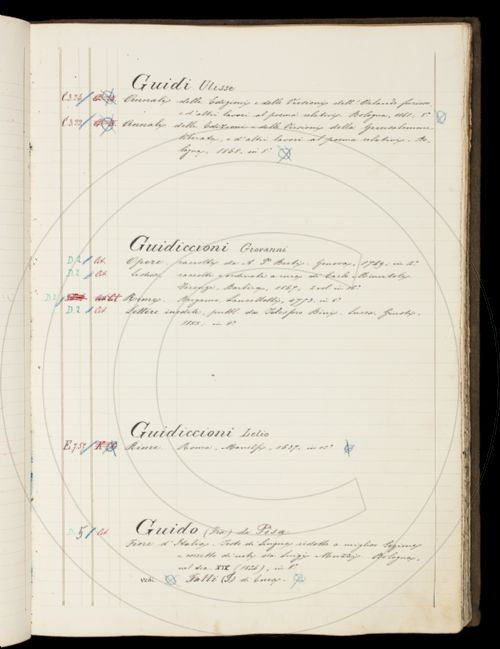 Guidi Ulisse
C322 / Annali delle Edizioni e delle Versioni dell' Orlando furioso
e d'altri lavori al poema relativi. Bologna, 1861, 8°
C322 / Annali delle Edizioni e delle Versioni della Gerusalemme
liberata, e d'altri lavori al poema relativi. Bo-
logna, 1868. in 8°
Guidiccioni Giovanni
D.2 / Cl. Opere, raccolte da A. P. Berti. Genova, 1749. in 4°
D.2 / Cl. raccolte e ordinate a cura di Carlo Minutoli.
Firenze, Barbèra, 1867, 2 vol. in 16°
D.2 Rime. Bergamo Lancellotti, 1753. in 8°
D.2 / Cl. Lettere inedite, pubbl. da Telesforo Bini. Lucca, Giusti,
1855, in 8°
Guidiccioni Lelio
E.757 / Rime. Roma, Manelfi, 1637. in 12°
Guido (Fra) da Pisa
D. 5 / Cl.
Fiore d'Italia. Testo di Lingua ridotto a miglior lezione
e corretto di note da Luigi Muzzi. Bologna,
nel sec. XIX (1824), in 8°
vedi Fatti (I) di Enea.